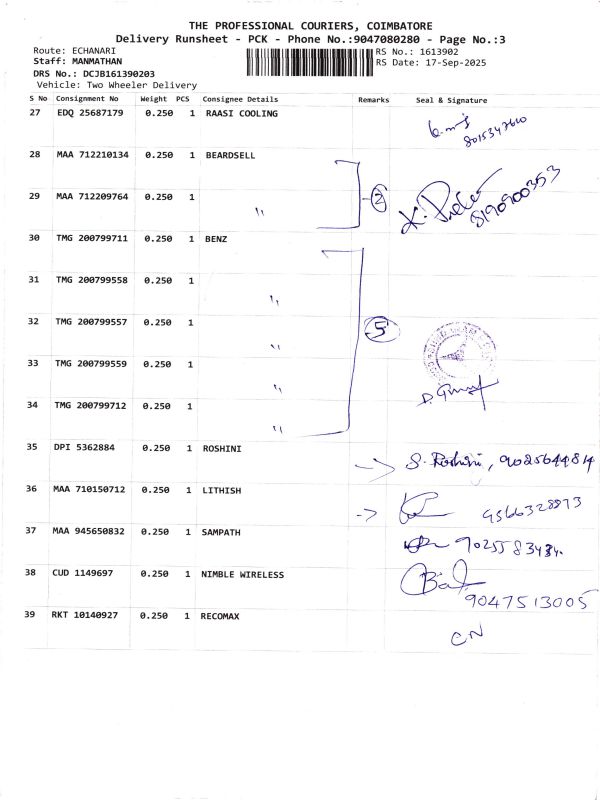 THE PROFESSIONAL COURIERS, COIMBATORE
Delivery Runsheet - PCK - Phone No.:9047080280 - Page No.:3
Route: ECHANARI
RS No.: 1613902
Staff: MANMATHAN
RS Date: 17-Sep-2025
DRS No.: DCJB161390203
Vehicle: Two Wheeler Delivery
S No Consignment No Weight PCS Consignee Details Remarks Seal & Signature
27 EDQ 25687179 0.250 1 RAASI COOLING
28 MAA 712210134 0.250 1 BEARDSELL
29 MAA 712209764 0.250 1 " ② 8190900353
30 TMG 200799711 0.250 1 BENZ
31 TMG 200799558 0.250 1 "
32 TMG 200799557 0.250 1 " ⑤
33 TMG 200799559 0.250 1 "
34 TMG 200799712 0.250 1 "
35 DPI 5362884 0.250 1 ROSHINI → S. Roshini, 9025644814
36 MAA 710150712 0.250 1 LITHISH → 9566328873
37 MAA 945650832 0.250 1 SAMPATH 9025583434.
38 CUD 1149697 0.250 1 NIMBLE WIRELESS 9047513005
39 RKT 10140927 0.250 1 RECOMAX CN